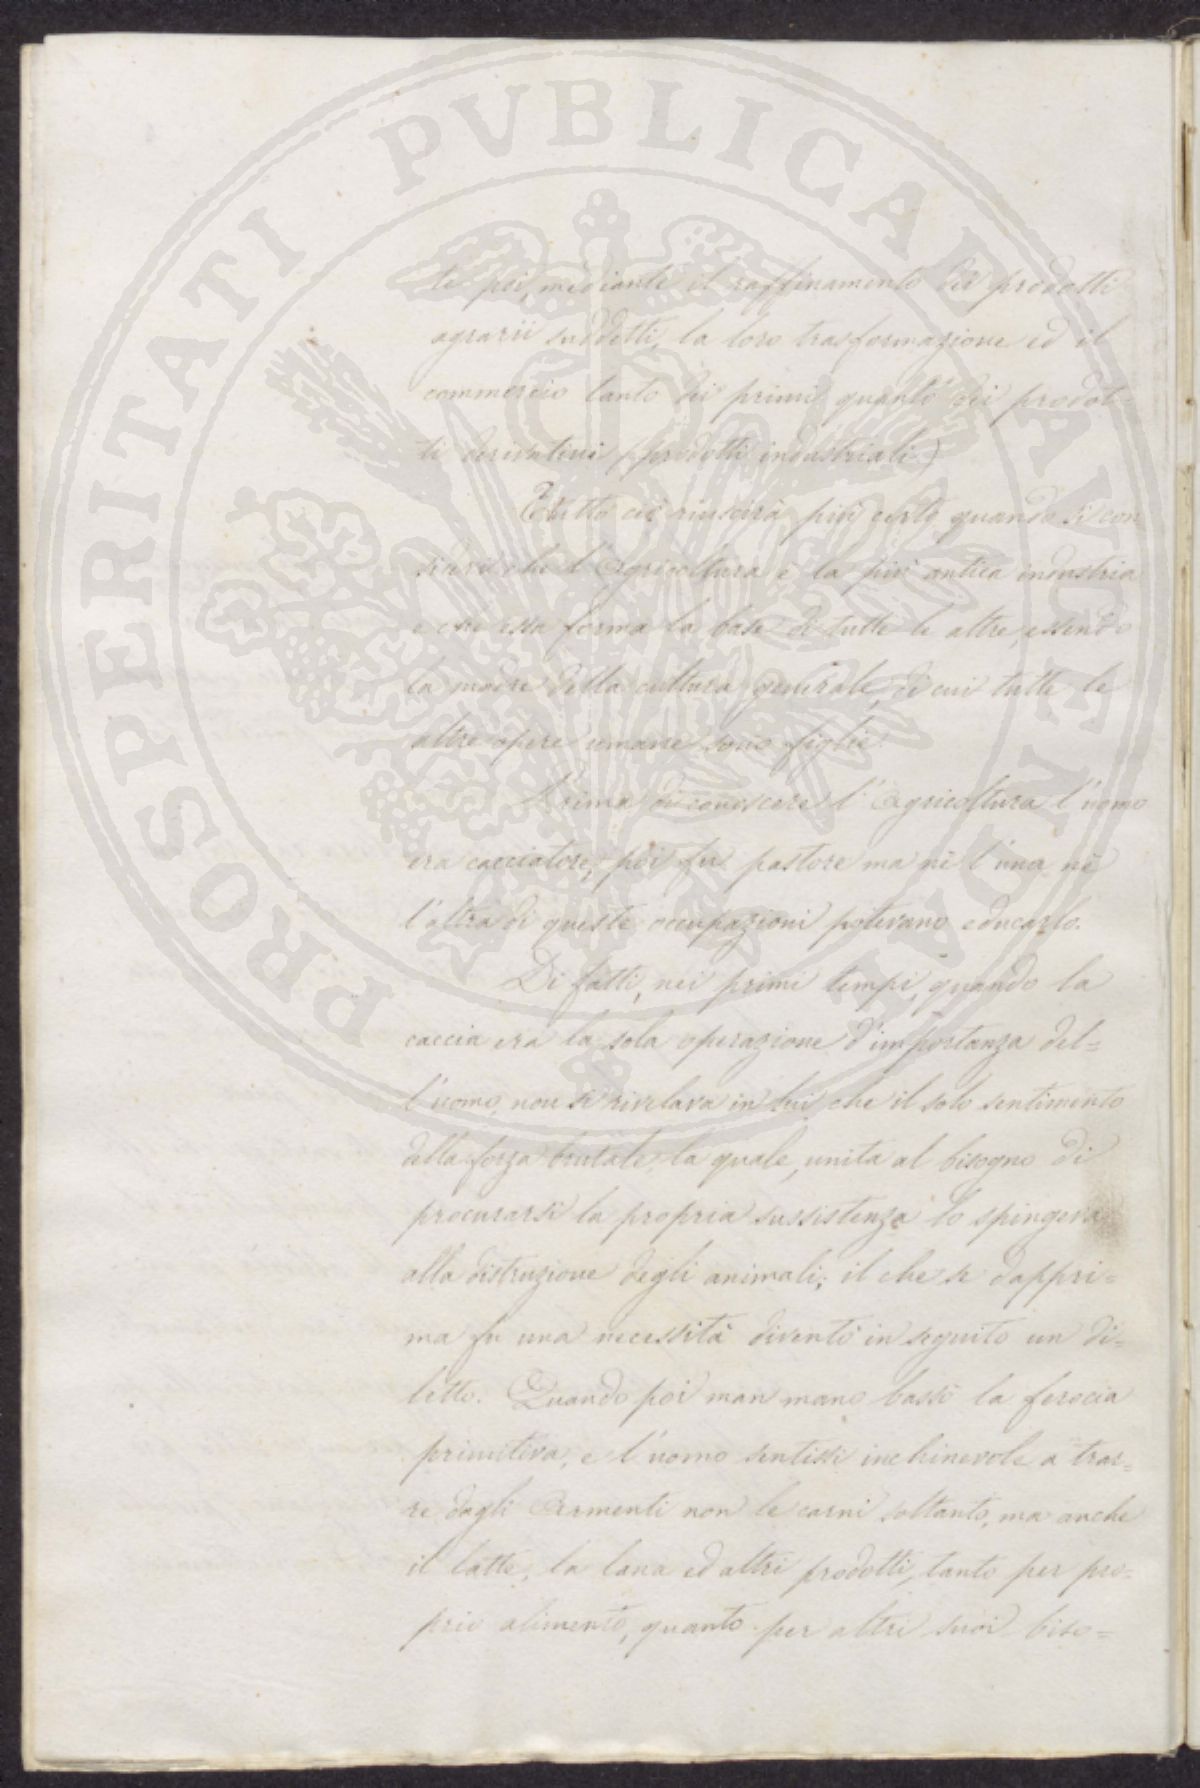 PROSPERITATI PVBLICAE AVGENDAE
te poi, mediante il raffinamento dei prodotti
agrarii suddetti, la loro trasformazione ed il
commercio tanto dei primi quanto dei prodot=
ti derivativi (prodotti industriali)
Tutto ciò riuscirà più certo, quando si con
sideri che l'Agricoltura è la più antica industria
e che essa forma la base di tutte le altre, essendo
la madre della cultura generale, di cui tutte le
altre opere umane sono figlie.
Prima di conoscere l'Agricoltura l'uomo
era cacciatore, poi fu pastore ma nè l'una nè
l'altra di queste occupazioni potevano educarlo.
Di fatti, nei primi tempi, quando la
caccia era la sola operazione d'importanza del=
l'uomo, non si rivelava in lui che il solo sentimento
della forza brutale, la quale, unita al bisogno di
procurarsi la propria sussistenza lo spingeva
alla distruzione degli animali; il che se dappri=
ma fu una necessità diventò in seguito un di=
letto. Quando poi man mano cessò la ferocia
primitiva, e l'uomo sentissi inchinevole a trar=
re dagli Armenti non le carni soltanto, ma anche
il latte, la lana ed altri prodotti, tanto per pro=
prio alimento, quanto per altri suoi biso=